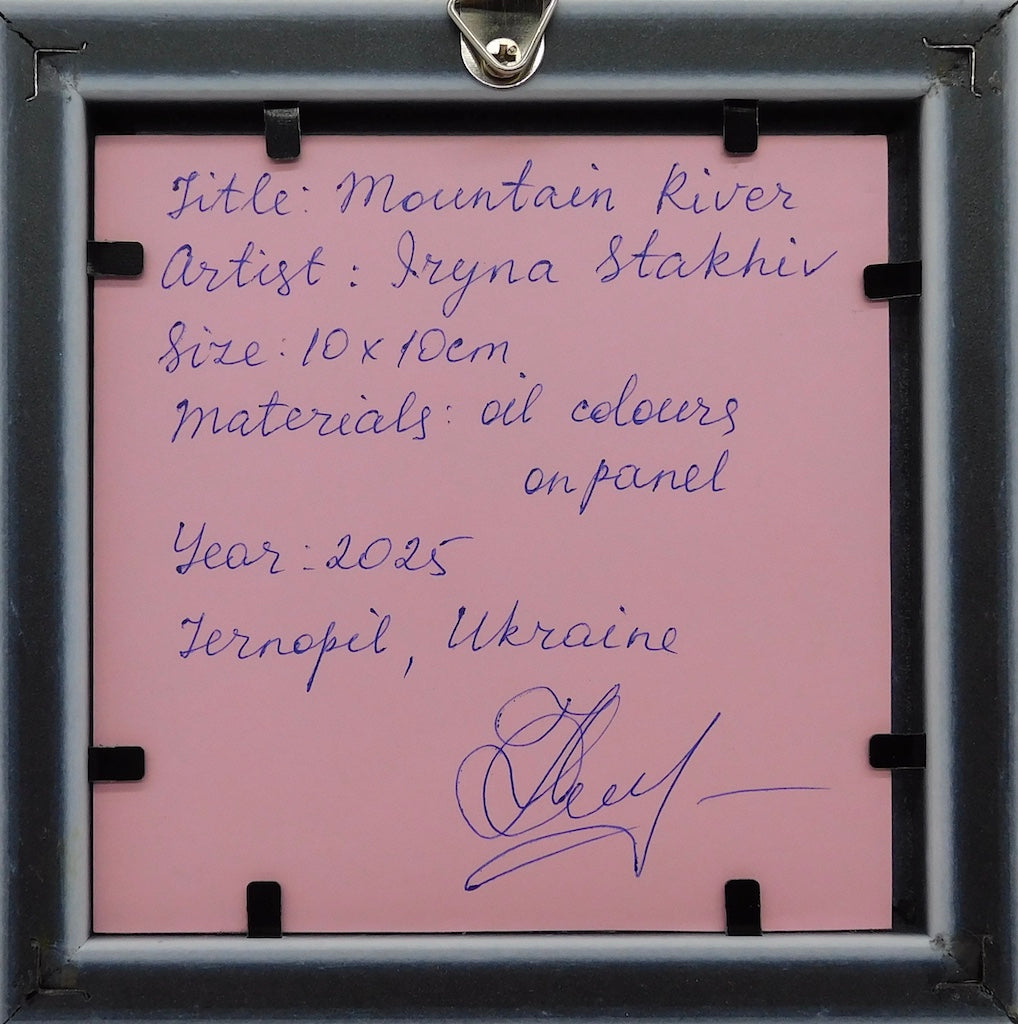 Title: Mountain River
Artist: Iryna Stakhiv
Size: 10 x 10cm
Materials: oil colours
on panel
Year: 2025
Ternopil, Ukraine